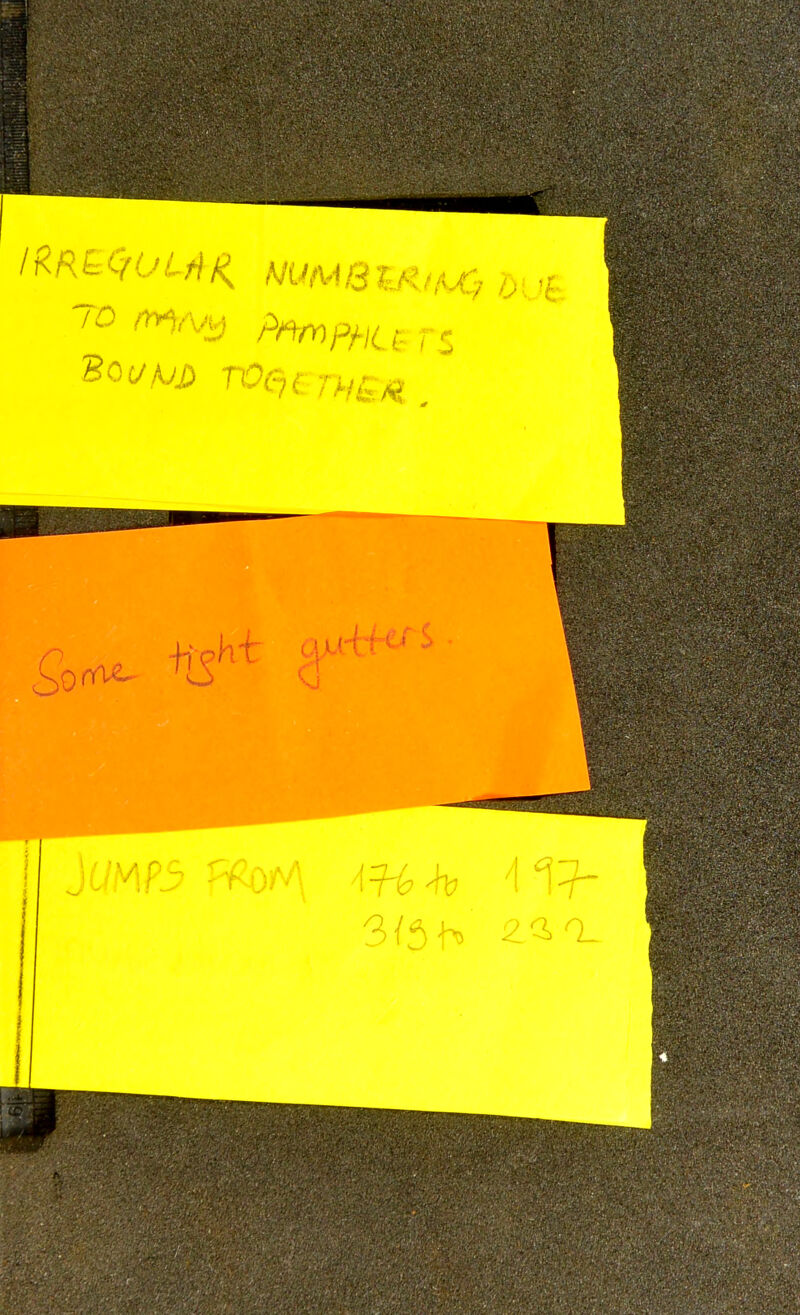 IRREGULAR NUMBERING DUE
TO MANY PAMPHLETS
BOUND TOGETHER.
Some tight gutters.
JUMPS FROM 176 to 197
313 to 232
19